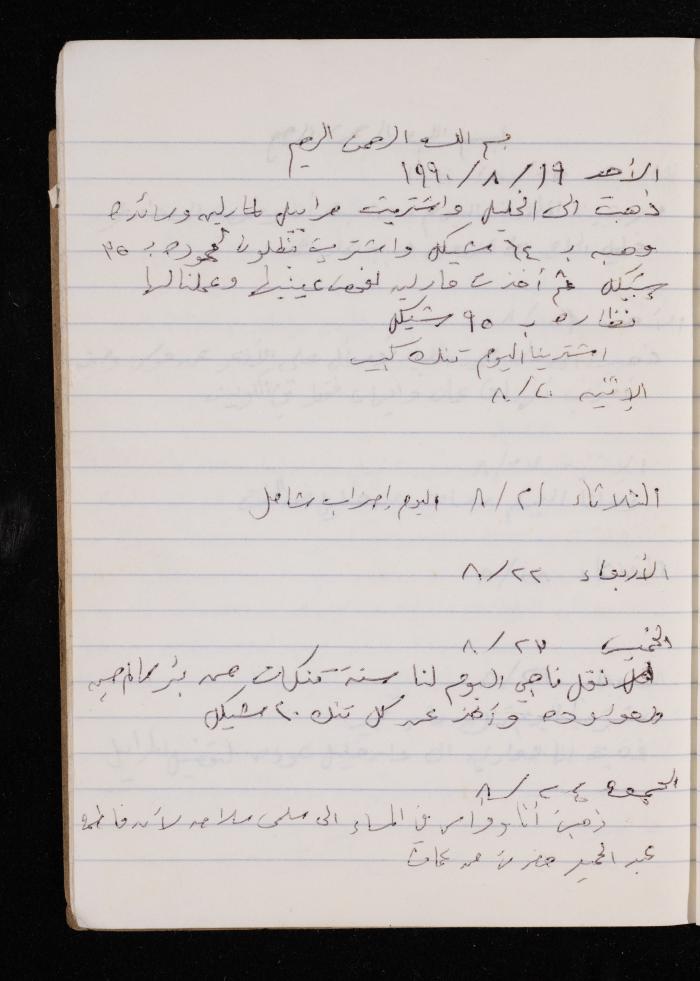 بسم الله الرحمن الرحيم
الأحد ١٩ / ٨ / ١٩٩٠
ذهبت الى الخليل واشتريت مراييل لمارلين وسائده
وهبه ب ٦٤ شيكل واشتريت بنطلون لحموده ب ٣٥
شيكل ثم أخذت مارلين لفحص عينيها وعملنا لها
نظاره ب ٩٥ شيكل
اشترينا اليوم تنك كبير
الإثنين ٢٠ / ٨
الثلاثاء ٢١ / ٨ اليوم إضراب شامل
الأربعاء ٢٢ / ٨
الخميس ٢٣ / ٨
نقل ناجي اليوم لنا ستة تنكات من بئر
وأخذ عن كل تنك ٢٠ شيكل
الجمعه ٢٤ / ٨
ذهبت أنا في المساء الى سلمى سلامه لأن فاطمه
عبد الحميد حضرت من عمان